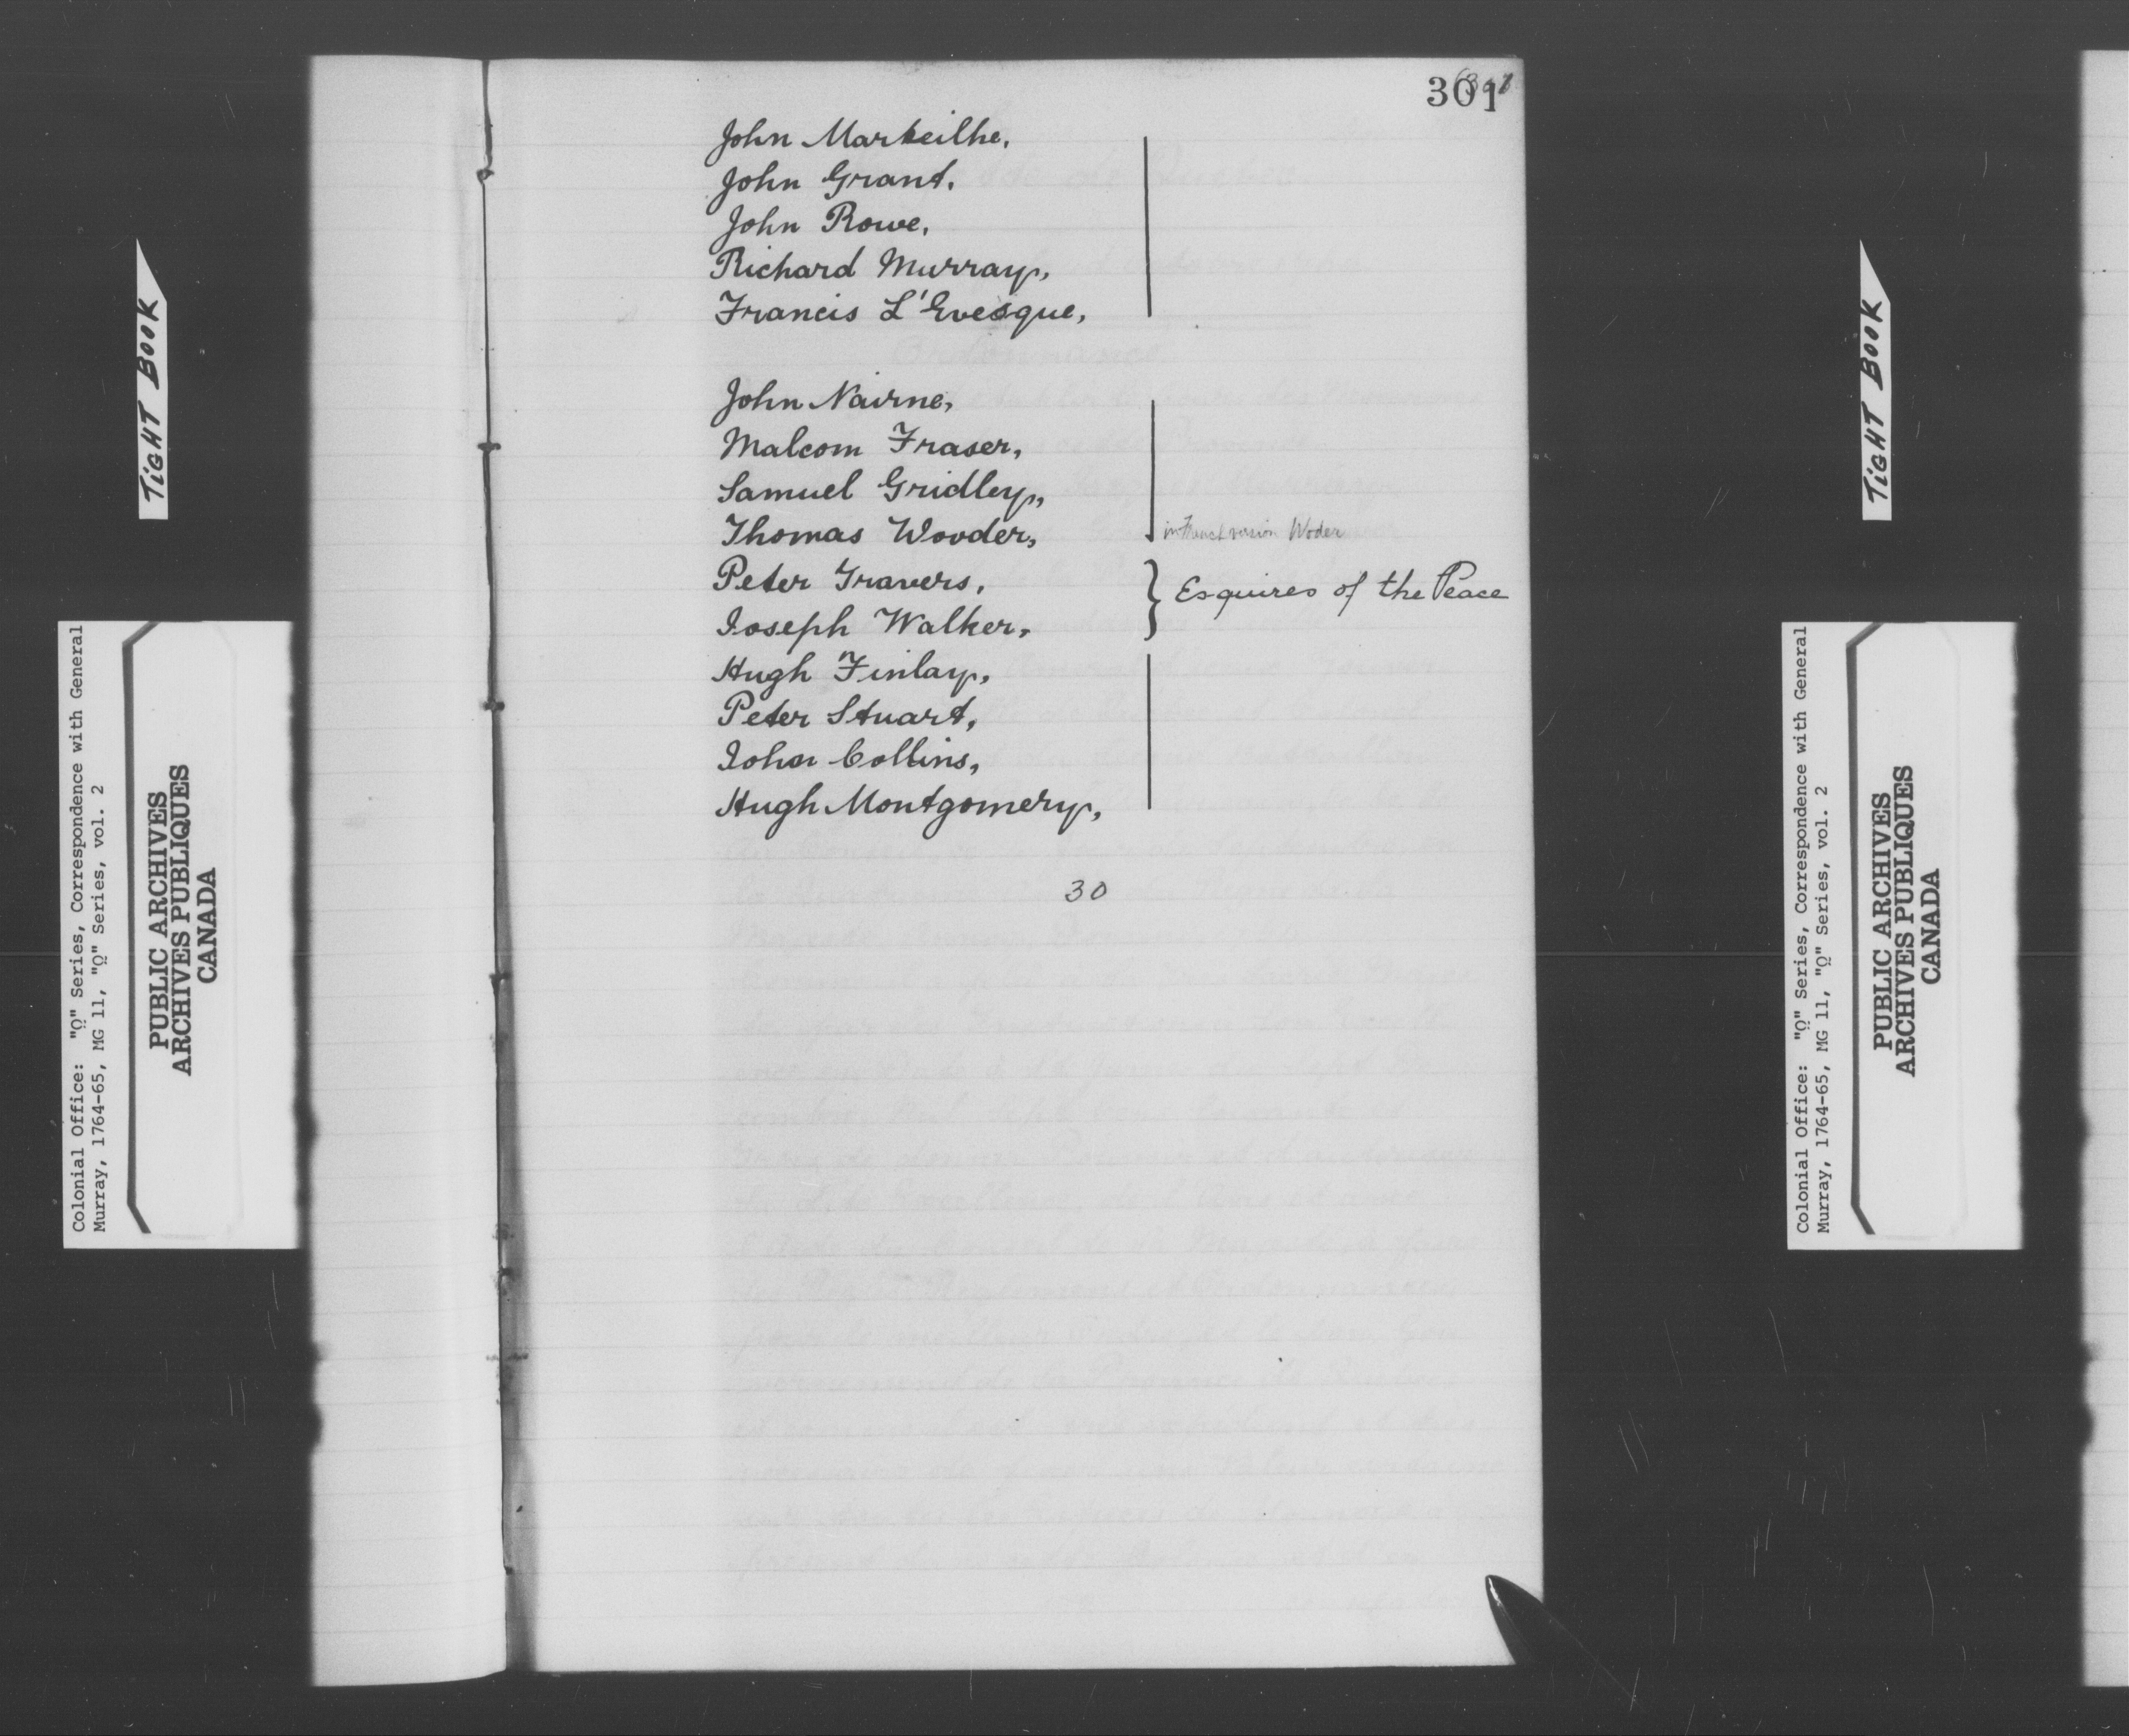 301
John Marteilhe,
John Grant,
John Rowe,
Richard Murray,
Francis L'Evesque,
John Nairne,
Malcom Fraser,
Samuel Gridley,
Thomas Wooder,
in French version Woder
Peter Travers,
Joseph Walker,
Esquires of the Peace
Hugh Finlay,
Peter Stuart,
John Collins,
Hugh Montgomery,
30
TIGHT BOOK
Colonial Office: "Q" Series, Correspondence with General
Murray, 1764-65, MG 11, "Q" Series, vol. 2
PUBLIC ARCHIVES
ARCHIVES PUBLIQUES
CANADA
TIGHT BOOK
Colonial Office: "Q" Series, Correspondence with General
Murray, 1764-65, MG 11, "Q" Series, vol. 2
PUBLIC ARCHIVES
ARCHIVES PUBLIQUES
CANADA